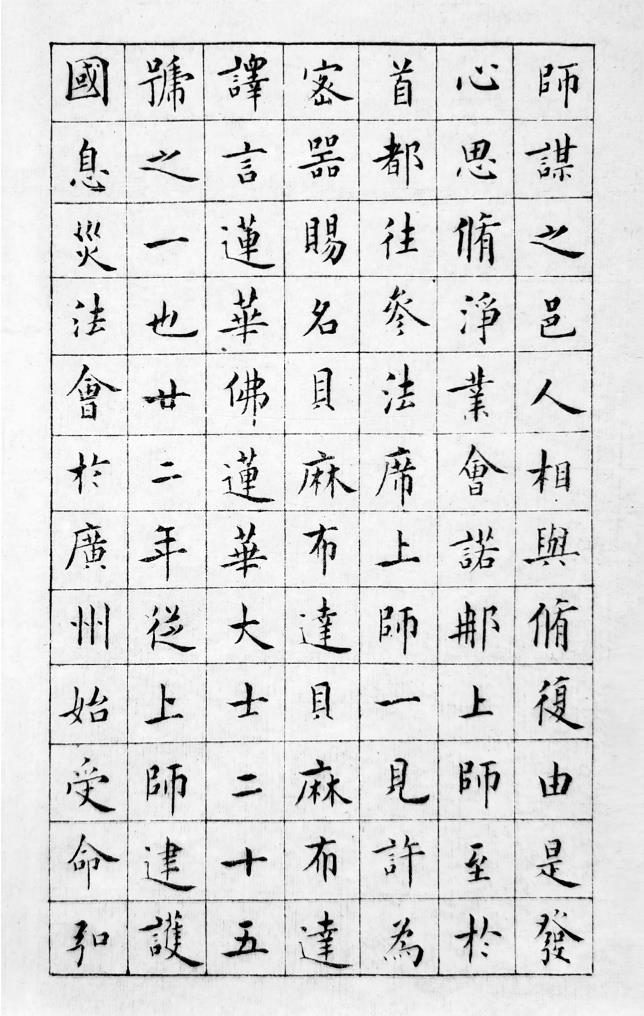 師謀之邑人相與脩復由是發
心思脩淨業會諾那上師至於
首都往參法席上師一見許為
密器賜名貝麻布達貝麻布達
譯言蓮華佛蓮華大士二十五
號之一也廿二年從上師建護
國息災法會於廣州始受命弘